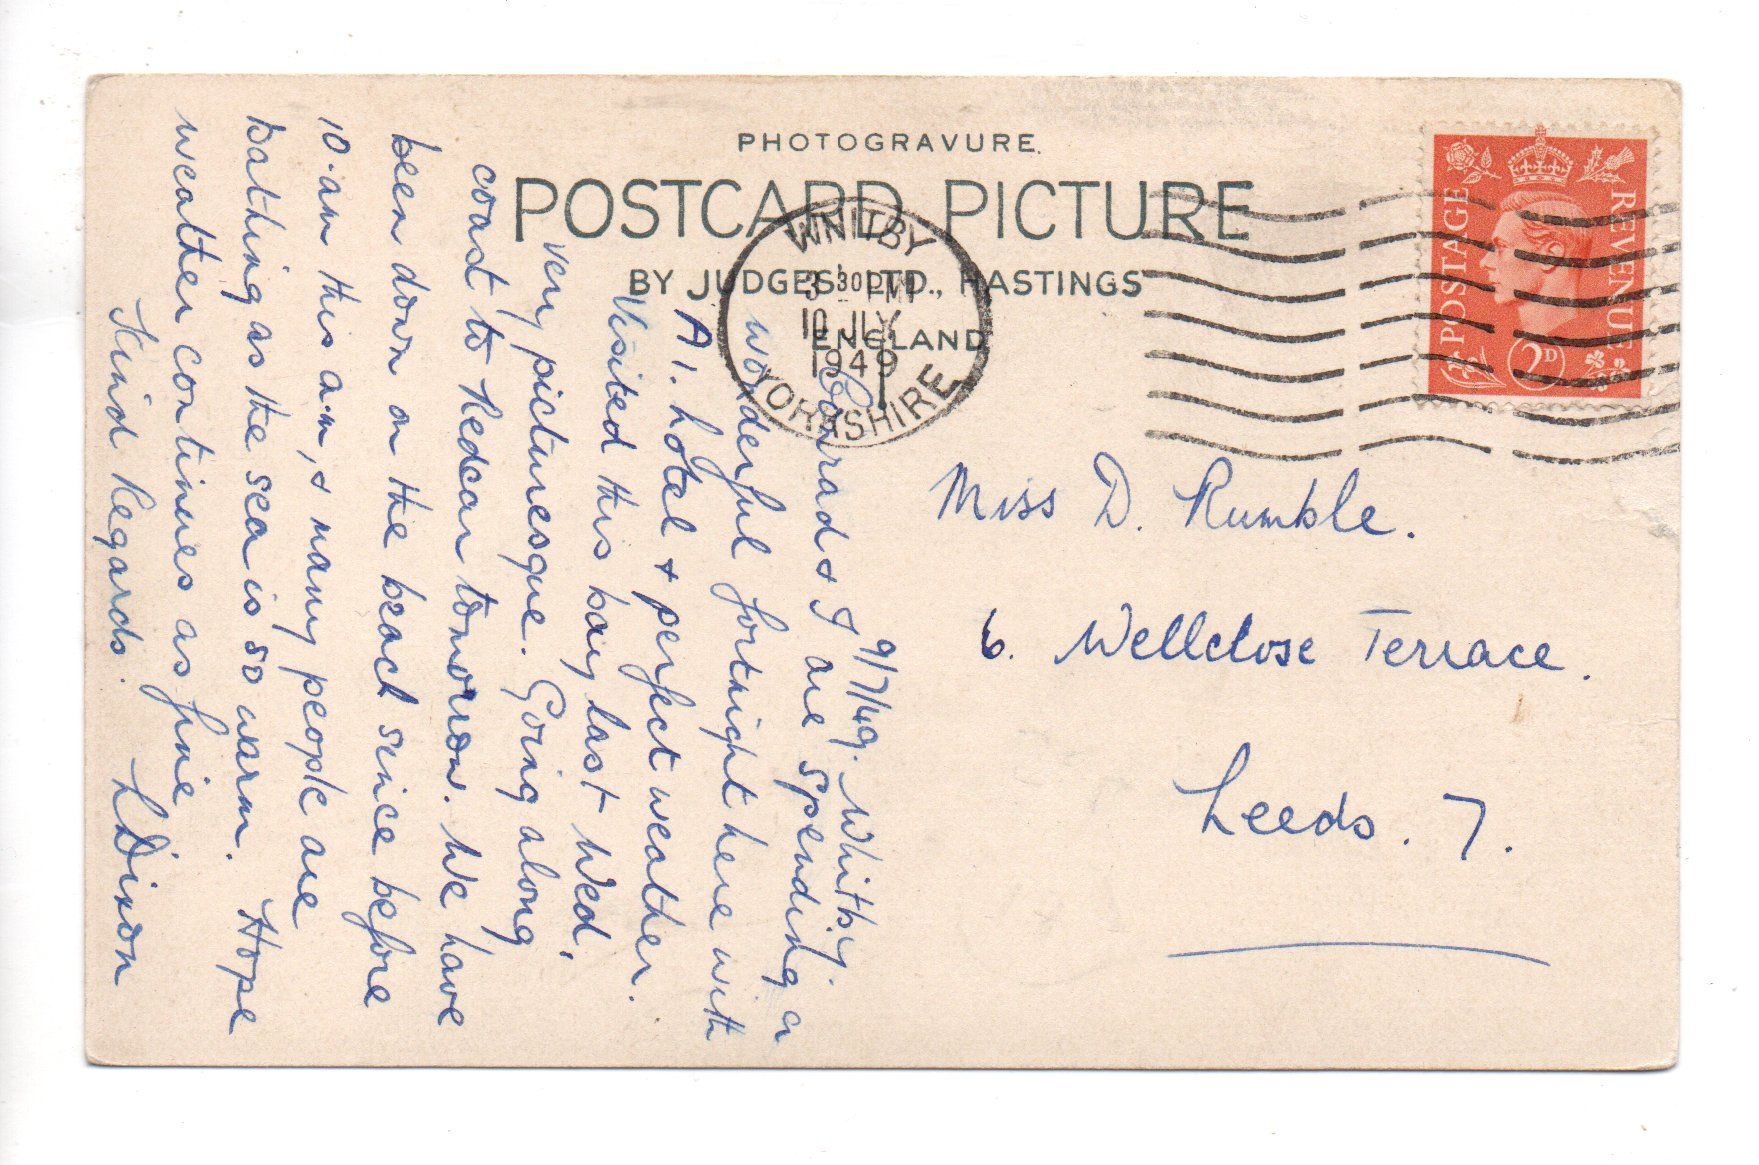 PHOTOGRAVURE.
POSTCARD PICTURE
BY JUDGES LTD., HASTINGS
ENGLAND
WHITBY
3 30 PM
10 JLY
1949
YORKSHIRE
POSTAGE
REVENUE
2D
9/7/49. Whitby.
& I are spending a
wonderful fortnight here with
A1. hotel & perfect weather.
Visited this bay last Wed,
very picturesque. Going along
coast to Redcar tomorrow. We have
been down on the beach since before
10.am this a.m, & many people are
bathing as the sea is so warm. Hope
weather continues as fine
Kind Regards. L Dixon
Miss D. Rumble.
6. Wellclose Terrace.
Leeds. 7.